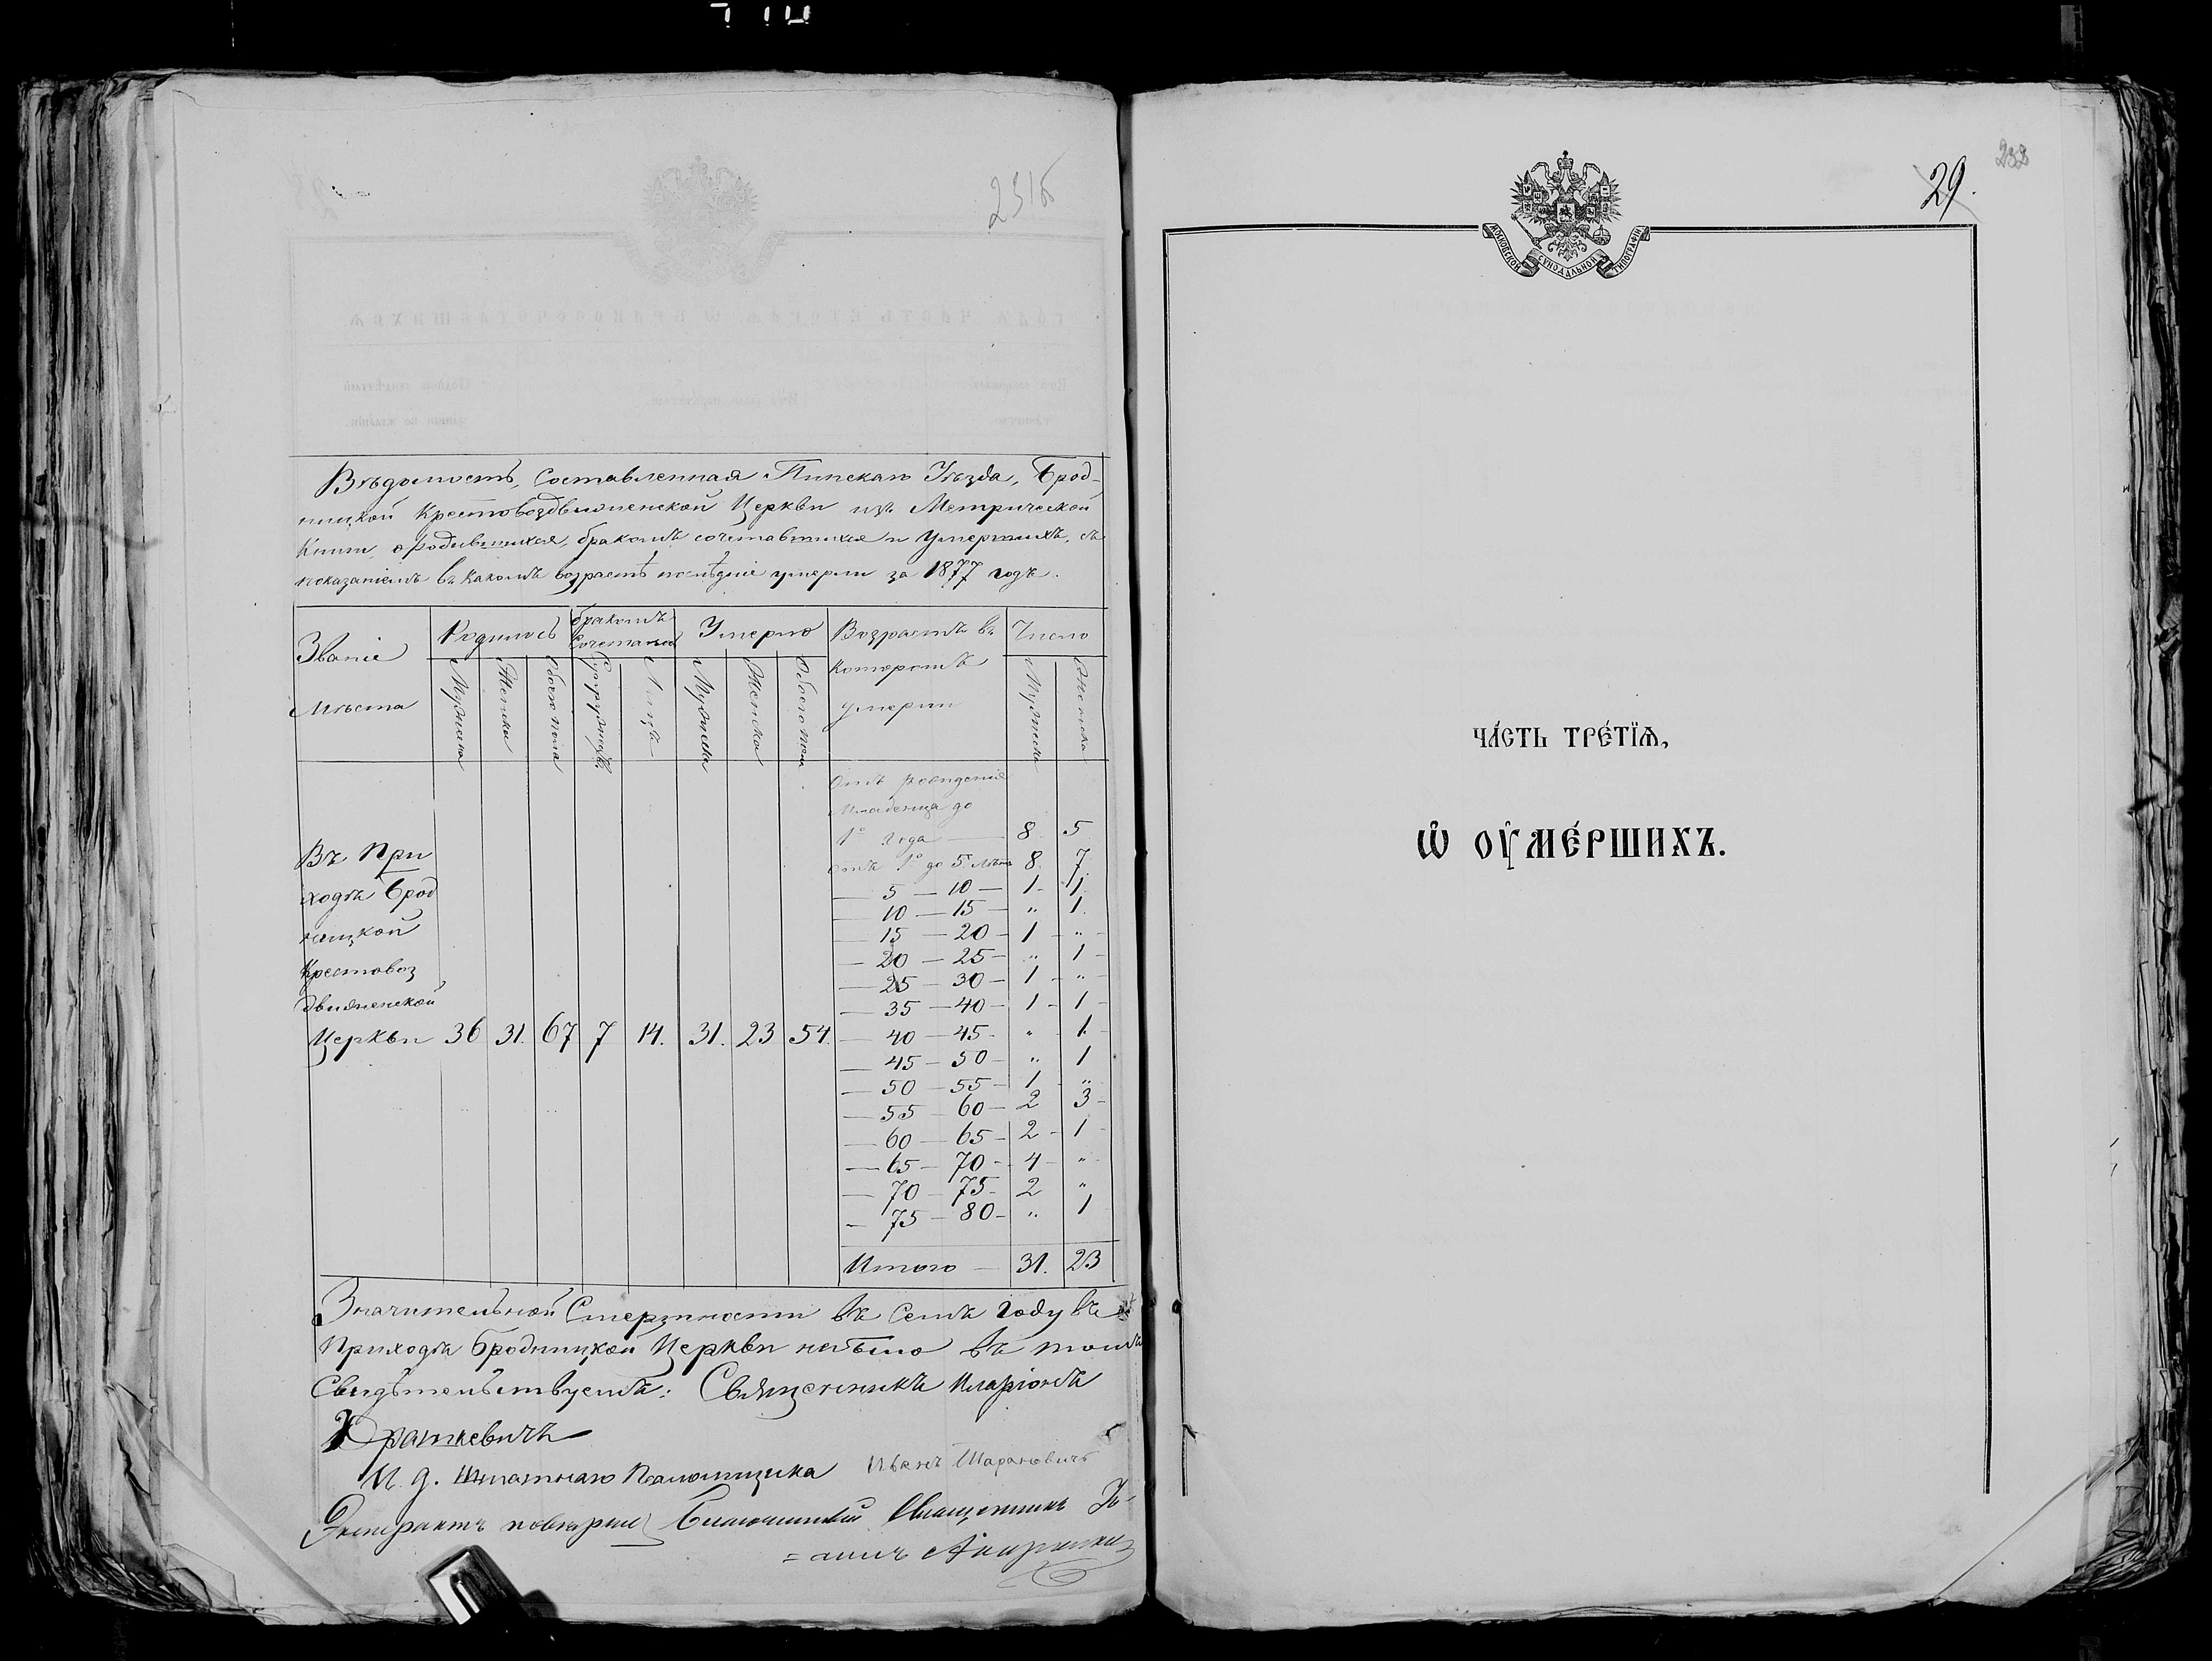 231б
Вѣдомость, Составленная Пинскаго Уѣзда, Брод-
ницкой Крестовоздвиженской Церкви изъ Метрической
Книги, о родившихся, бракомъ сочетавшихся и Умершихъ, съ
показаніемъ въ какомъ возрастѣ послѣдніе умерли за 1877 годъ.
Званіе Мѣста Родилось бракомъ Сочеталось Умерло Возрастъ въ которомъ умерли Число
Мужска Женска Обоего пола Супружествъ Лицъ Мужска Женска Обоего пола Мужска Женска
Отъ рожденія
Младенца до
1º года — 8 5
отъ 1º до 5 лѣтъ 8 7
— 5 — 10 — 1 - 1
— 10 — 15 — „ 1
— 15 — 20 — 1 - „ -
— 20 — 25 — „ 1 -
— 25 — 30 — 1 - „ -
— 35 — 40 — 1 - 1 -
— 40 — 45 - „ 1 -
— 45 — 50 — „ 1
— 50 — 55 — 1 - „
— 55 — 60 — 2 3 -
— 60 — 65 - 2 - 1 -
— 65 — 70 - 4 - „ -
— 70 — 75 - 2 „
— 75 — 80 - „ 1
Итого — 31. 23
Въ При
ходѣ Брод
ницкой
Крестовоз
движенской
Церкви 36 31. 67 7 14. 31. 23 54.
Значительной Смертности въ семъ году въ
Приходѣ Бродницкой Церкви небыло въ томъ
Свидѣтельствуемъ: Священникъ Иларіонъ
И. д. Штатнаго Псаломщика Иванъ Шаранович
Экстрактъ повѣрялъ Благочинный Священникъ
29.
232
МОСКОВСКОЙ СУНОДАЛЬНОЙ ТИПОГРАФІИ
ЧА́СТЬ ТРЕ́ТЇѦ,
Ѡ҆ ОУ҆МЕ́РШИХЪ.